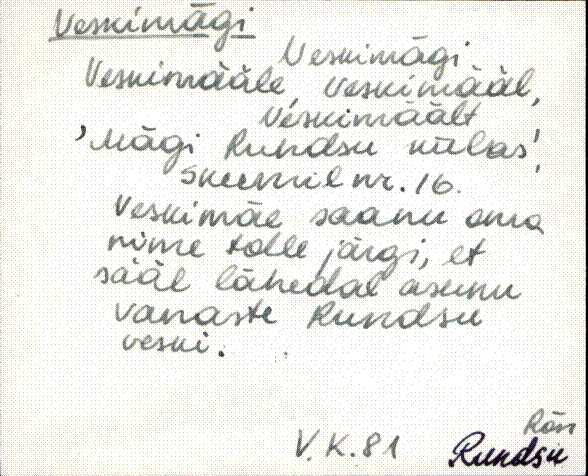 Veskimägi
Veskimägi
Veskimääle, Veskimääl,
Veskimäält
'Mägi Rundsu külas',
Skeemil nr. 16.
Veskimäe saanu oma
nime tolle järgi, et
sääl lähedal asunu
vanaste Rundsu
veski.
Rõn
V.K.81 Rundsu